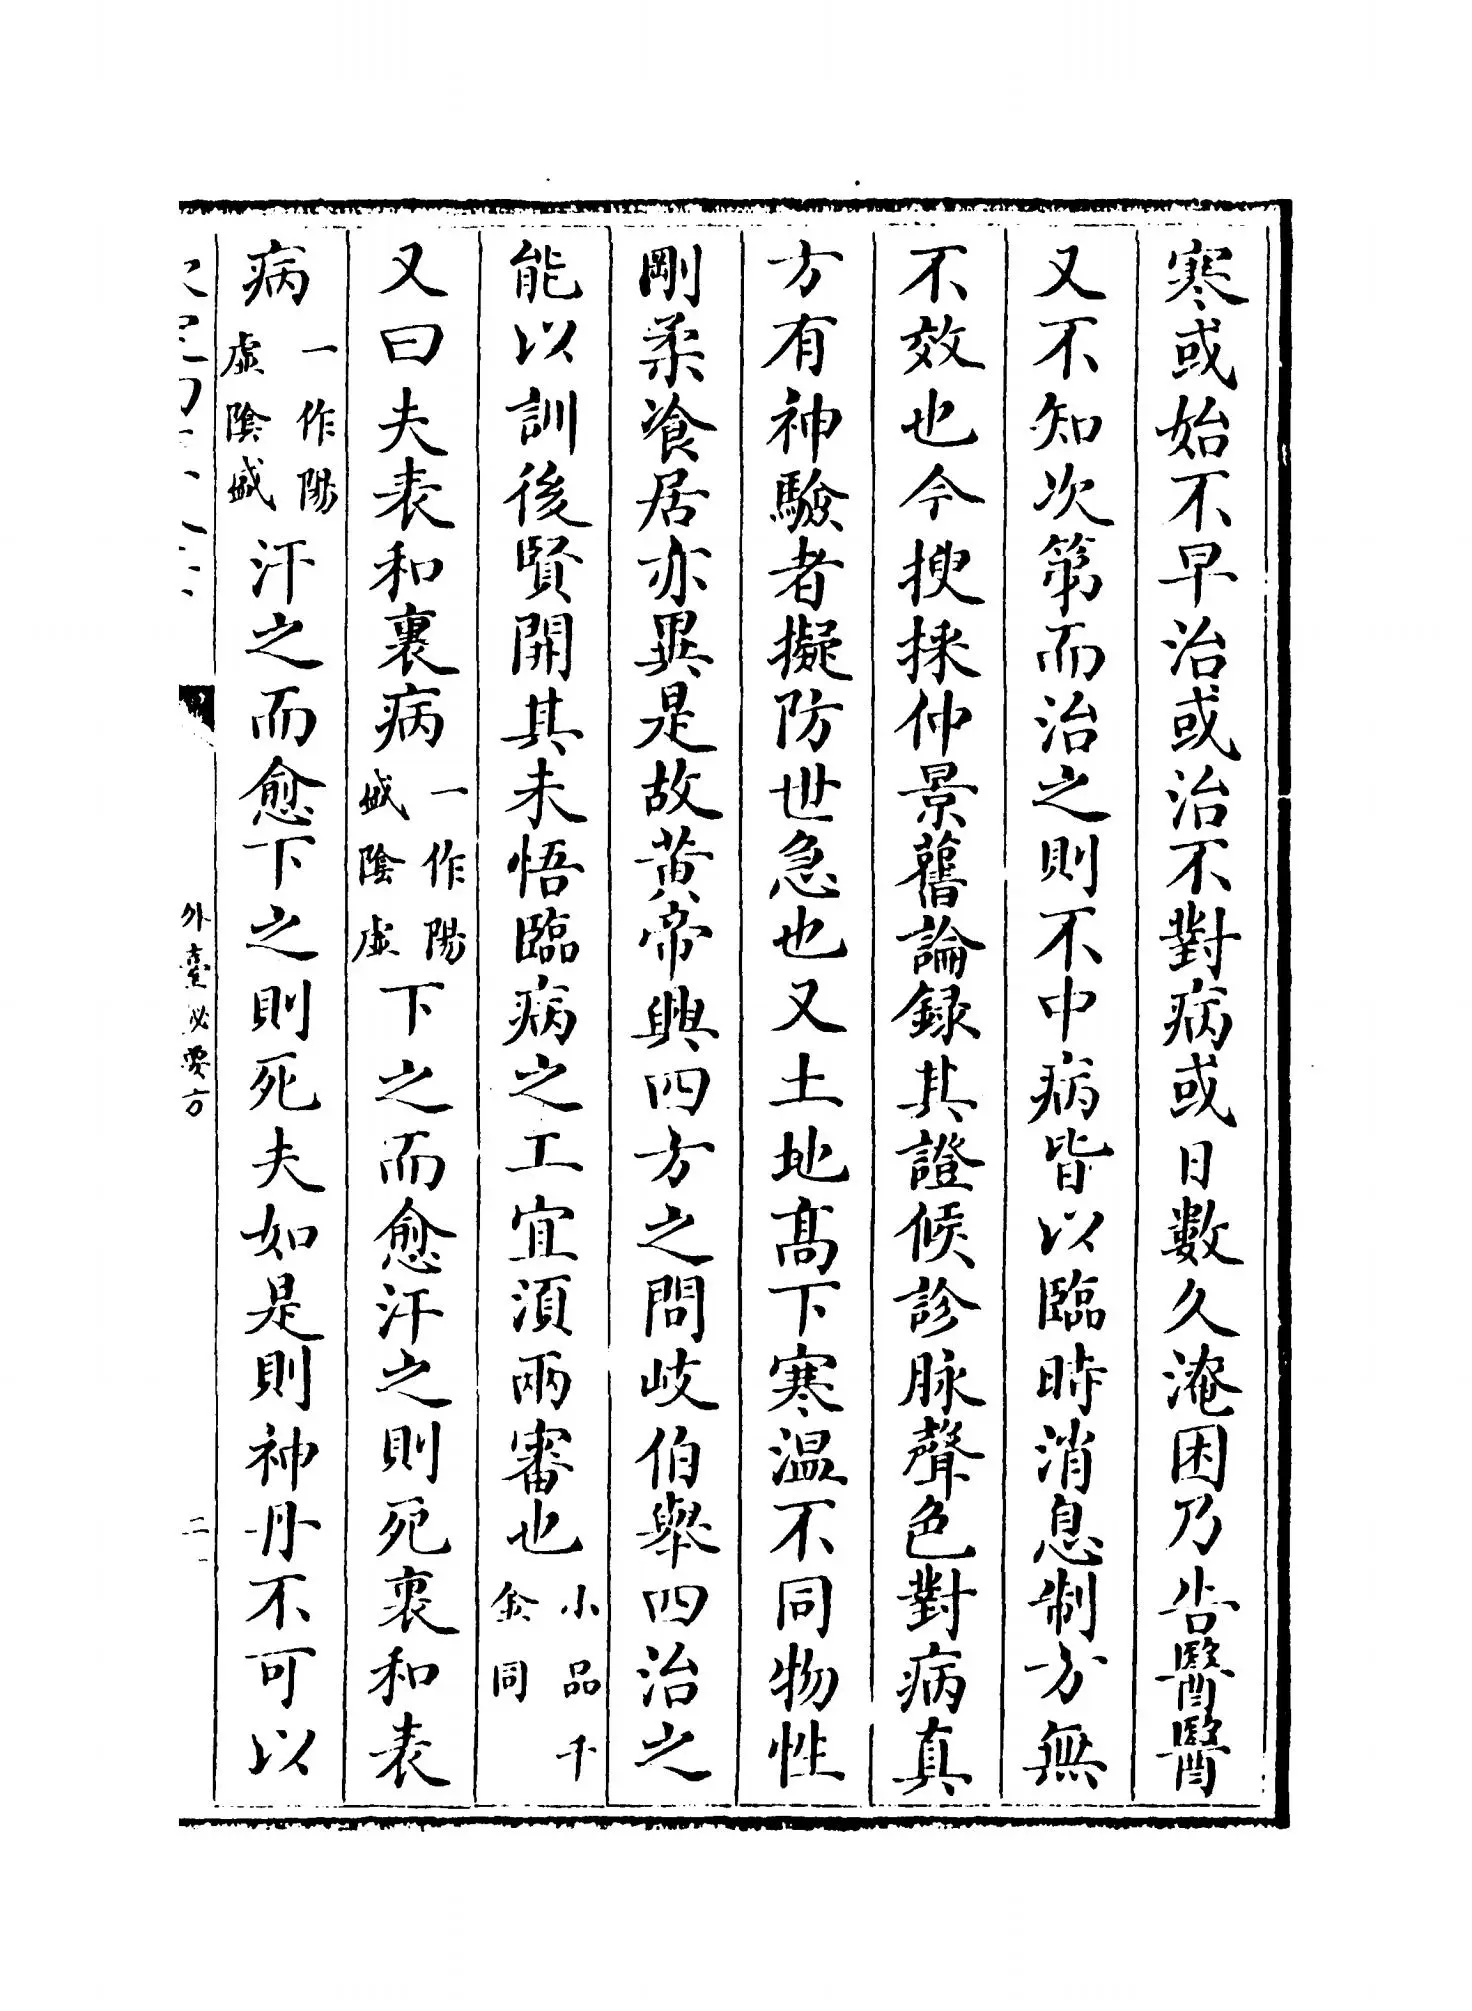 寒或始不早治或治不對病或日數久淹困乃告醫醫
又不知次第而治之則不中病皆以臨時消息制方無
不效也今搜採仲景舊論録其證候診脉聲色對病真
方有神驗者擬防世急也又土地髙下寒温不同物性
剛柔飡居亦異是故黄帝興四方之問岐伯舉四治之
能以訓後賢開其未悟臨病之工宜須兩審也小品千金同
又曰夫表和裏病一作陽盛陰虛下之而愈汗之則死裏和表
病一作陽虛陰盛汗之而愈下之則死夫如是則神丹不可以
外臺必要方
二